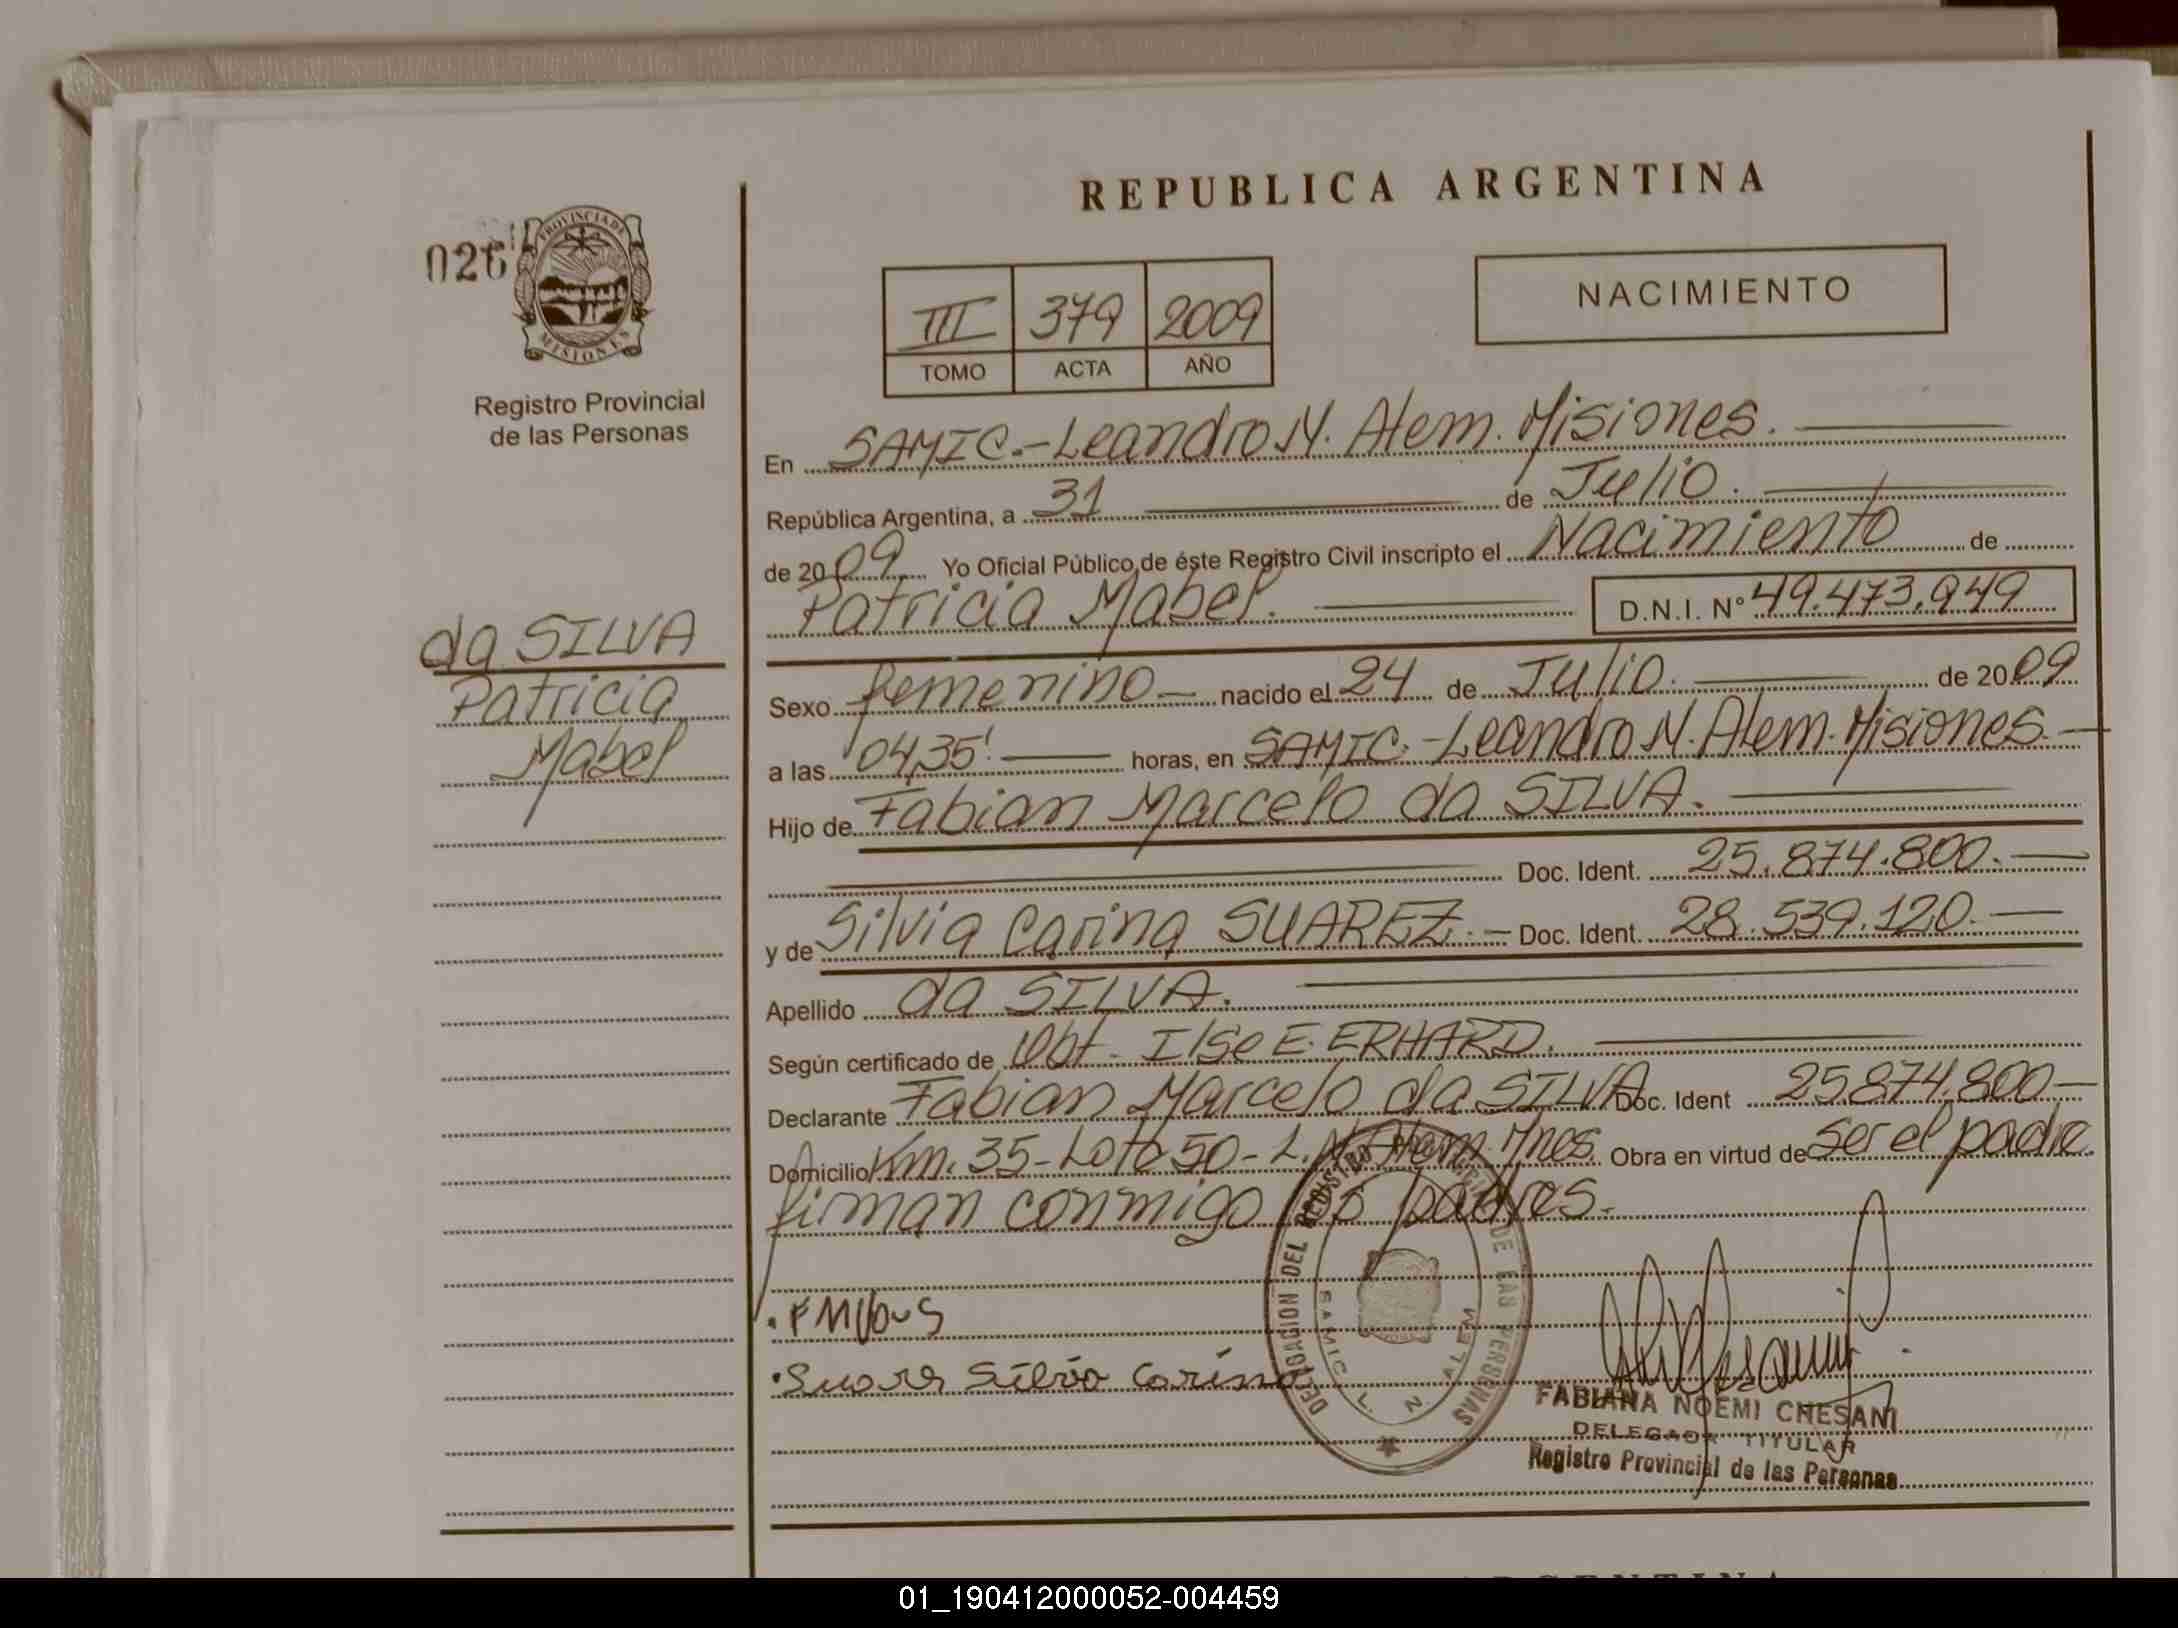 REPUBLICA ARGENTINA
026
PROVINCIA DE
MISIONES
Registro Provincial
de las Personas
III 379 2009
TOMO ACTA AÑO
NACIMIENTO
da SILVA
Patricia
Mabel
En SAMIC.-Leandro N. Alem. Misiones.
República Argentina, a 31 de Julio.
de 2009 Yo Oficial Público de éste Registro Civil inscripto el Nacimiento de
Patricia Mabel. D.N.I. Nº 49.473.949
Sexo femenino nacido el 24 de Julio. de 2009
a las 04,35' horas, en SAMIC.-Leandro N. Alem. Misiones.
Hijo de Fabian Marcelo da SILVA.
Doc. Ident. 25.874.800.
y de Silvia Carina SUAREZ. Doc. Ident. 28.539.120.
Apellido da SILVA.
Según certificado de Obt. Ilse E. ERHARD.
Declarante Fabian Marcelo da SILVA Doc. Ident 25.874.800
Domicilio Km. 35-Lote 50-L.N. Alem. Mnes. Obra en virtud de ser el padre
firman conmigo los padres.
Silvia Carina
DELEGACION DEL REGISTRO PROVINCIAL DE LAS PERSONAS
SAMIC L. N. ALEM
FABIANA NOEMI CHESANI
DELEGADA TITULAR
Registro Provincial de las Personas
ARGENTINA
01_190412000052-004459